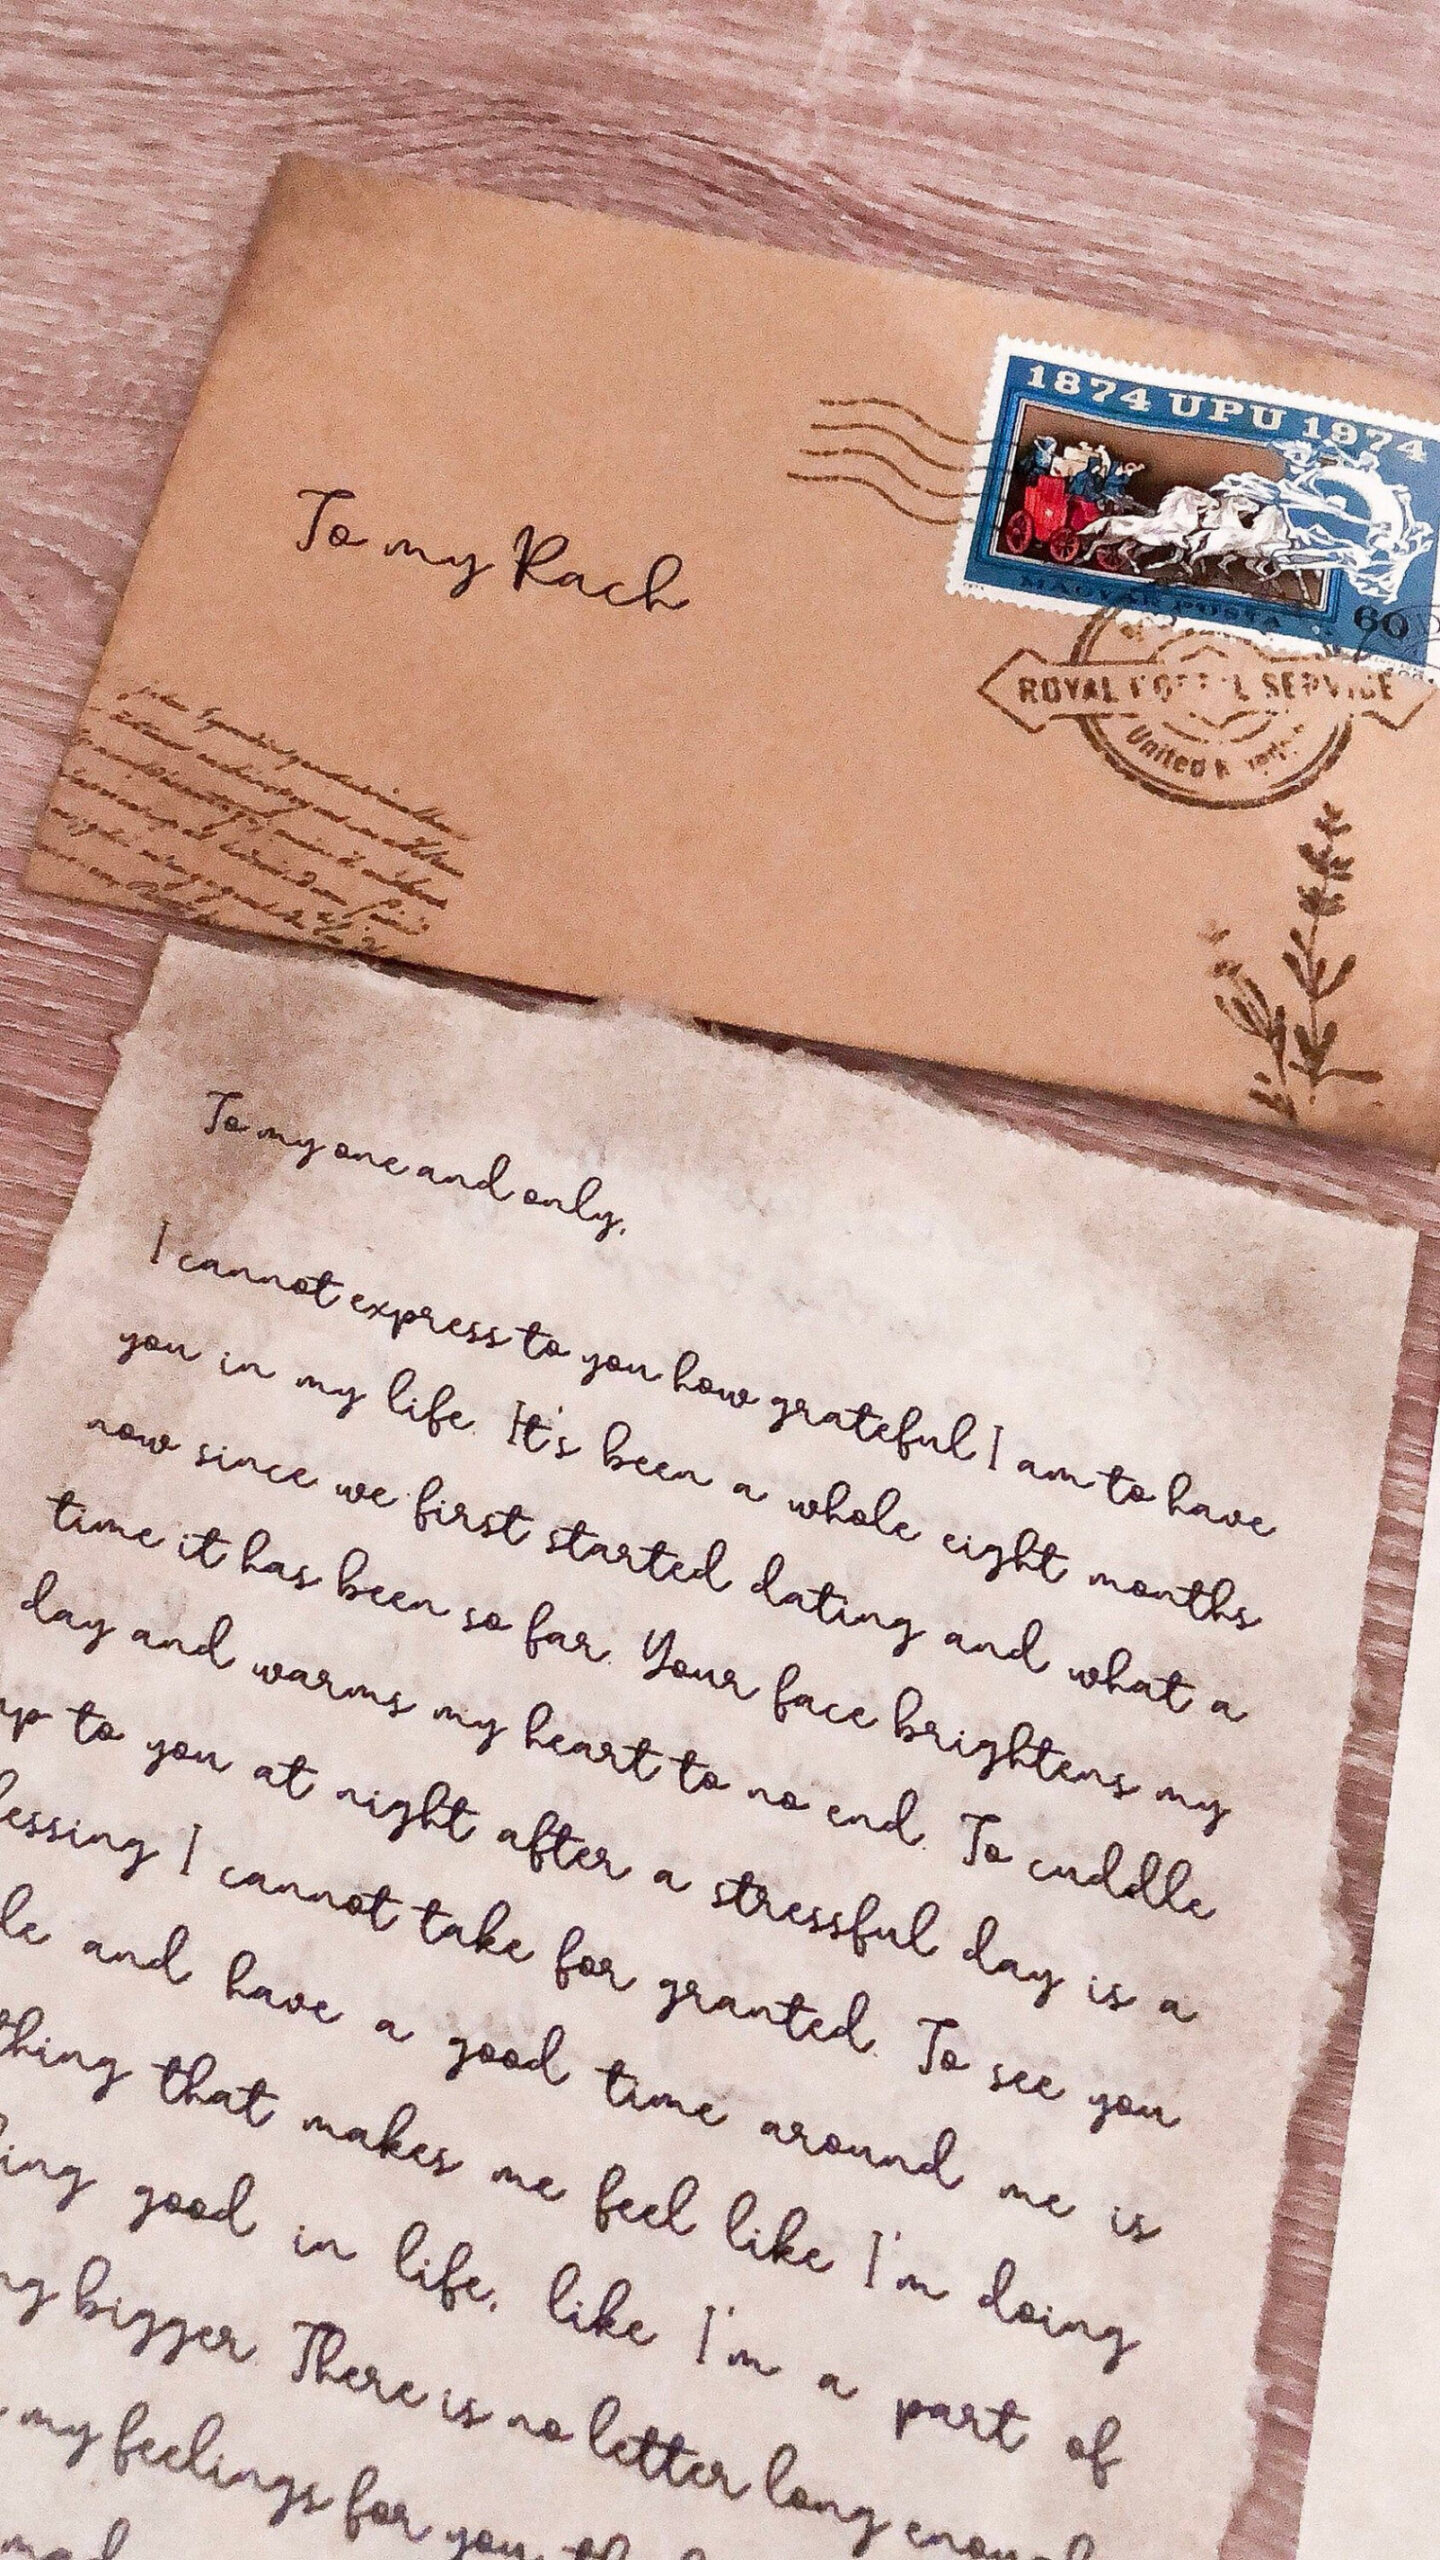 1874 UPU 1974
MAGYAR POSTA
60
To my Rach
ROYAL POSTAL SERVICE
United
To my one and only,
I cannot express to you how grateful I am to have
you in my life. It's been a whole eight months
now since we first started dating and what a
time it has been so far. Your face brightens my
day and warms my heart to no end. To cuddle
up to you at night after a stressful day is a
lessing I cannot take for granted. To see you
le and have a good time around me is
thing that makes me feel like I'm doing
ing good in life, like I'm a part of
ng bigger. There is no letter long enough
my feelings for you